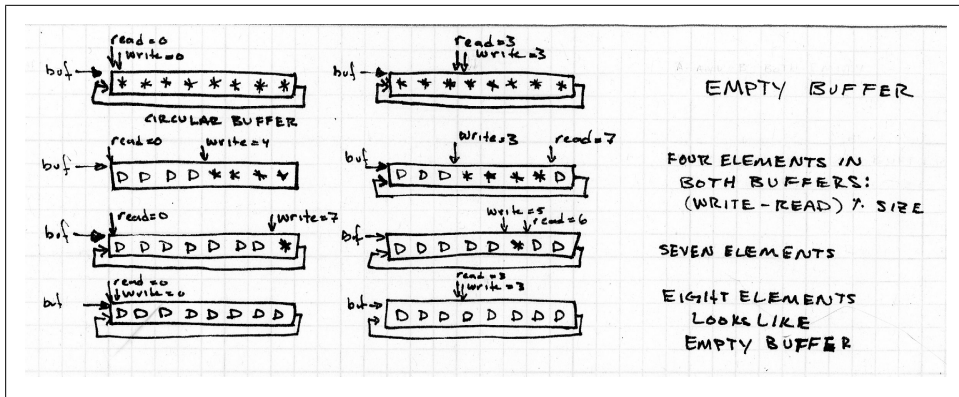 read=0
write=0
buf
* * * * * * * *
CIRCULAR BUFFER
read=3
write=3
buf
* * * * * * * *
EMPTY BUFFER
read=0
write=4
buf
D D D D * * * *
write=3
read=7
buf
D D D * * * * D
FOUR ELEMENTS IN
BOTH BUFFERS:
(WRITE-READ) % SIZE
read=0
write=7
buf
D D D D D D D *
write=5
read=6
Buf
D D D D D * D D
SEVEN ELEMENTS
read=0
write=0
buf
D D D D D D D D
read=3
write=3
buf
D D D D D D D D
EIGHT ELEMENTS
LOOKS LIKE
EMPTY BUFFER